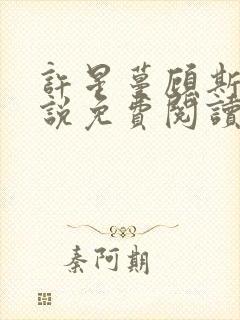 許星蔓顧斯
說免費閱讀
秦阿期